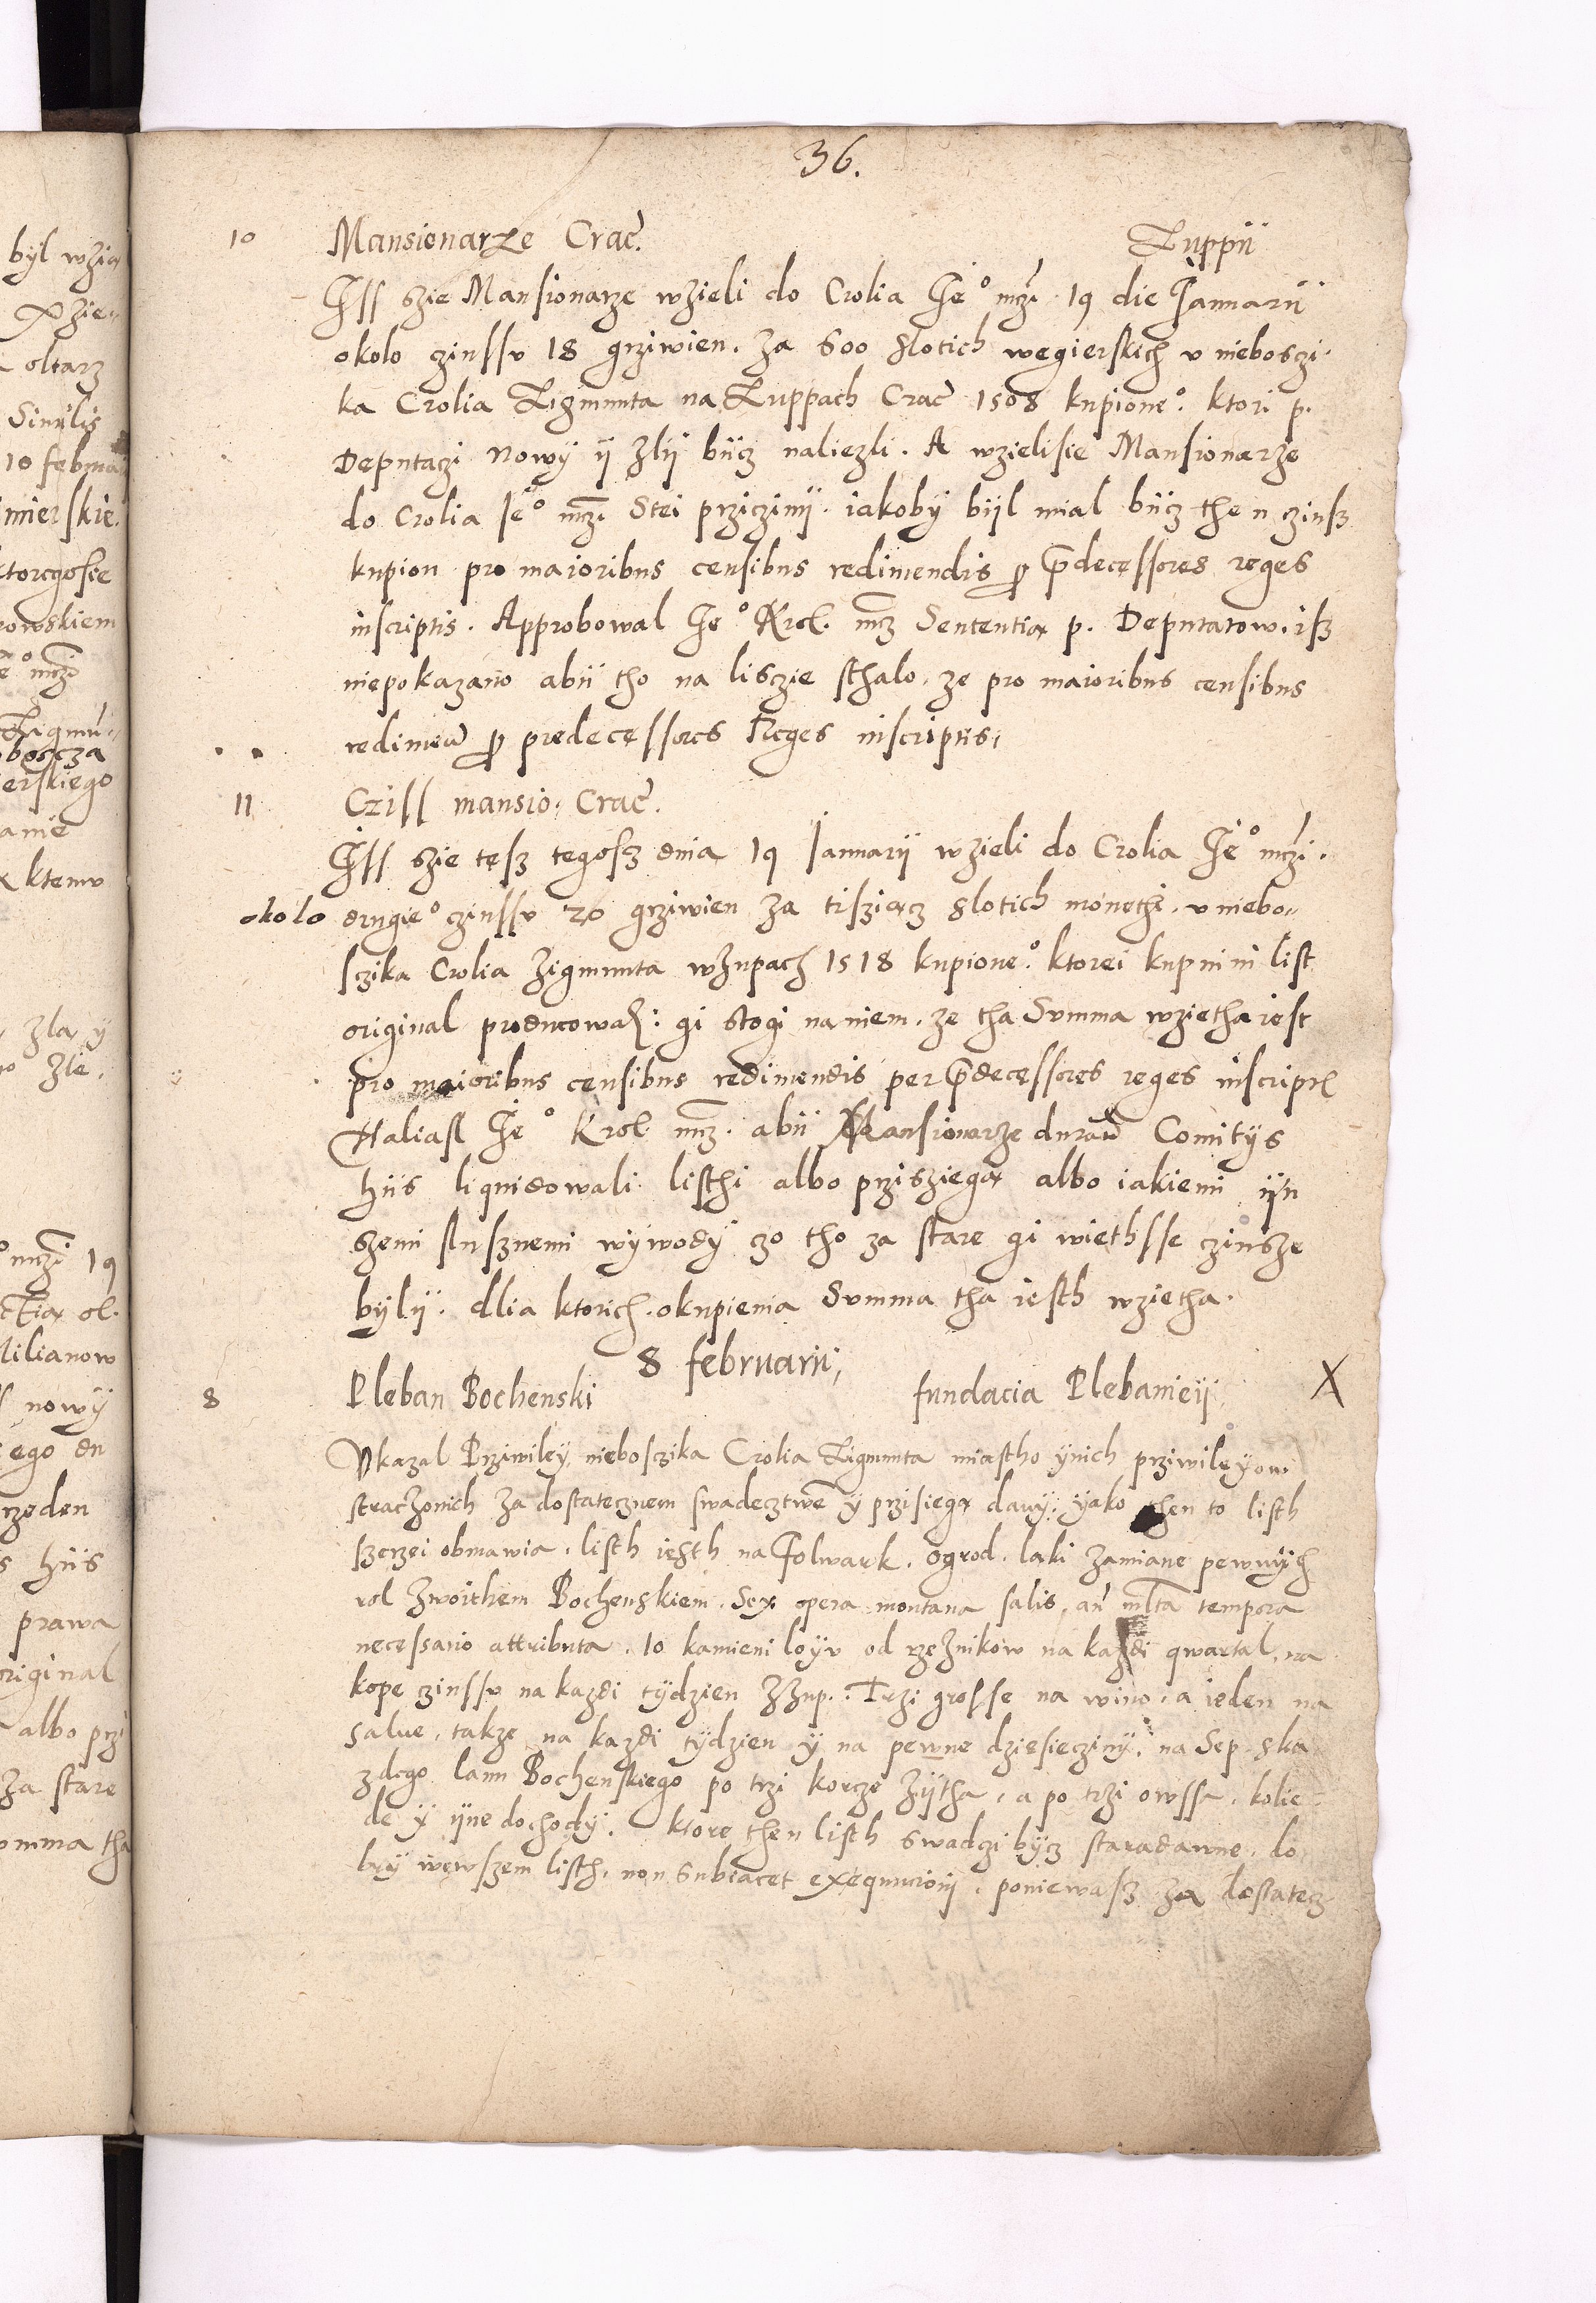 36.
10 Mansionarze Crac. Zuppy
Iss szie Mansionarze wzieli do Crolia Je° mczi 19 die Januarii
okolo czinssu 18 grziwien. za 600 slotich wegierskich v niebosczi-
ka Crolia Zigmunta na Zuppach Crac 1508 kupione°. ktori p.
Deputaczi nowy ÿ zlÿ bÿcz naliezli. A wzielisie Mansionarze
do Crolia Je° mczi Stei prziczinÿ. iakobÿ bÿl mial bÿcz then czinsz
kupion pro maioribus censibus redimendis p predecessores reges
inscriptis. Approbowal Je° Krol. mcz Sententia p. Deputatow. isz
niepokazano abÿ tho na lisczie sthalo, ze pro maioribus censibus
redimen p predecessores Reges inscriptis,
11 Cziss mansio. Crac.
Iss szie tesz tegosz dnia 19 Januarii wzieli do Crolia Je° mczi.
okolo drugie° czinssu 20 grziwien za tisziacz slotich monethi. v niebo-
sczika Crolia Zigmunta wZupach 1518 kupione°. ktorei kupnini list
original producowali: gi stogi naniem. ze tha Summa wzietha iest
pro maioribus censibus redimendis per predecessores reges inscript
Naliasl Je° Krol. mcz. abÿ Mansionarze duran Comitÿs
hiis liquidowali listhi albo prziszięga albo iakiemi ÿn
szemi slusznemi wÿwodÿ czo tho za stare gi wiethsse czinsze
bylÿ. dlia ktorich okupienia Summa tha iesth wzietha.
8 februarii,
8 Pleban Bochenski fundacia Plebanieÿ X
Vkazal Prziwiley nieboszika Crolia Zigmunta miastho ÿnich prziwileÿow
straczonich za dostatecznem swadecztwe ÿ przisiega danÿ: ÿako then to listh
szerzei obmawia. listh iesth na folwark. ogrod. laki zamiane pewnÿch
rol zwoithem Bochenskiem. Sex opera montana salis, an mlta tempora
necessario attributa. 10 kamieni loÿu od rzeznikow na kazdi qwartal, na
kope czinssu na kazdi tÿdzien zzup.. Trzi grosse na wino. a ieden na
salue, takze na kazdi tÿdzien ÿ na pewne dziesiecziny. na Sep ska
zdego lanu Bochenskiego po trzi korcze zÿtha, a po trzi owssa. kolie-
de ÿ ÿne dochodÿ. ktore then listh swadczi bÿcz staradawne. do
brÿ wewszem listh, non subiacet exequucioni, poniewasz za dostatecz